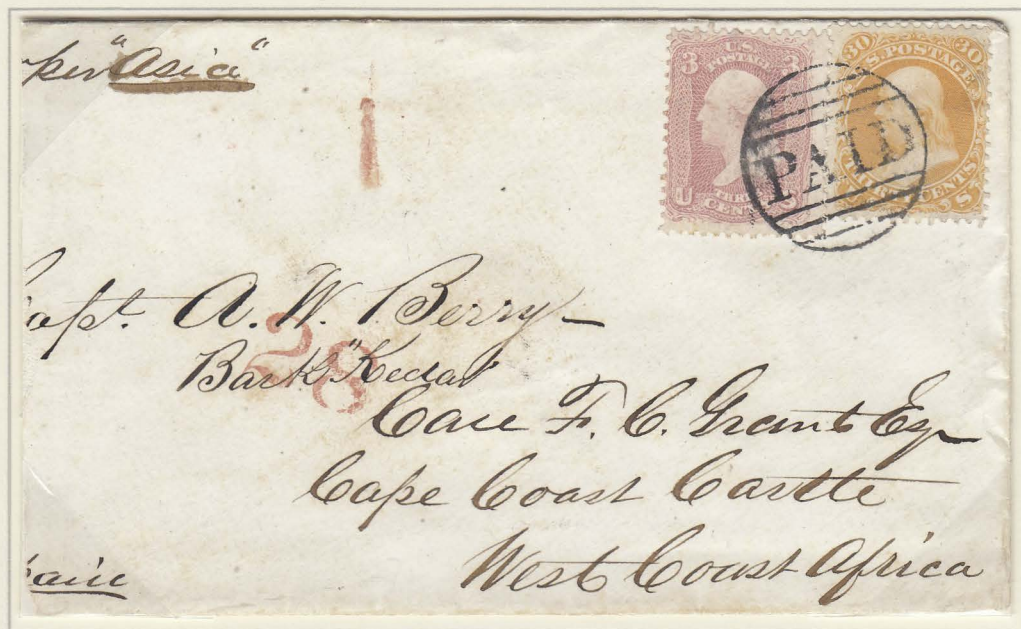 per "Asia"
3 U.S. POSTAGE 3
U THREE CENTS S
30 U.S. POSTAGE 30
U THIRTY CENTS S
PAID
1
Capt. A. W. Berry
28
Bark "Kedar"
Care F. C. Grant Esq
Cape Coast Castle
West Coast Africa
paid